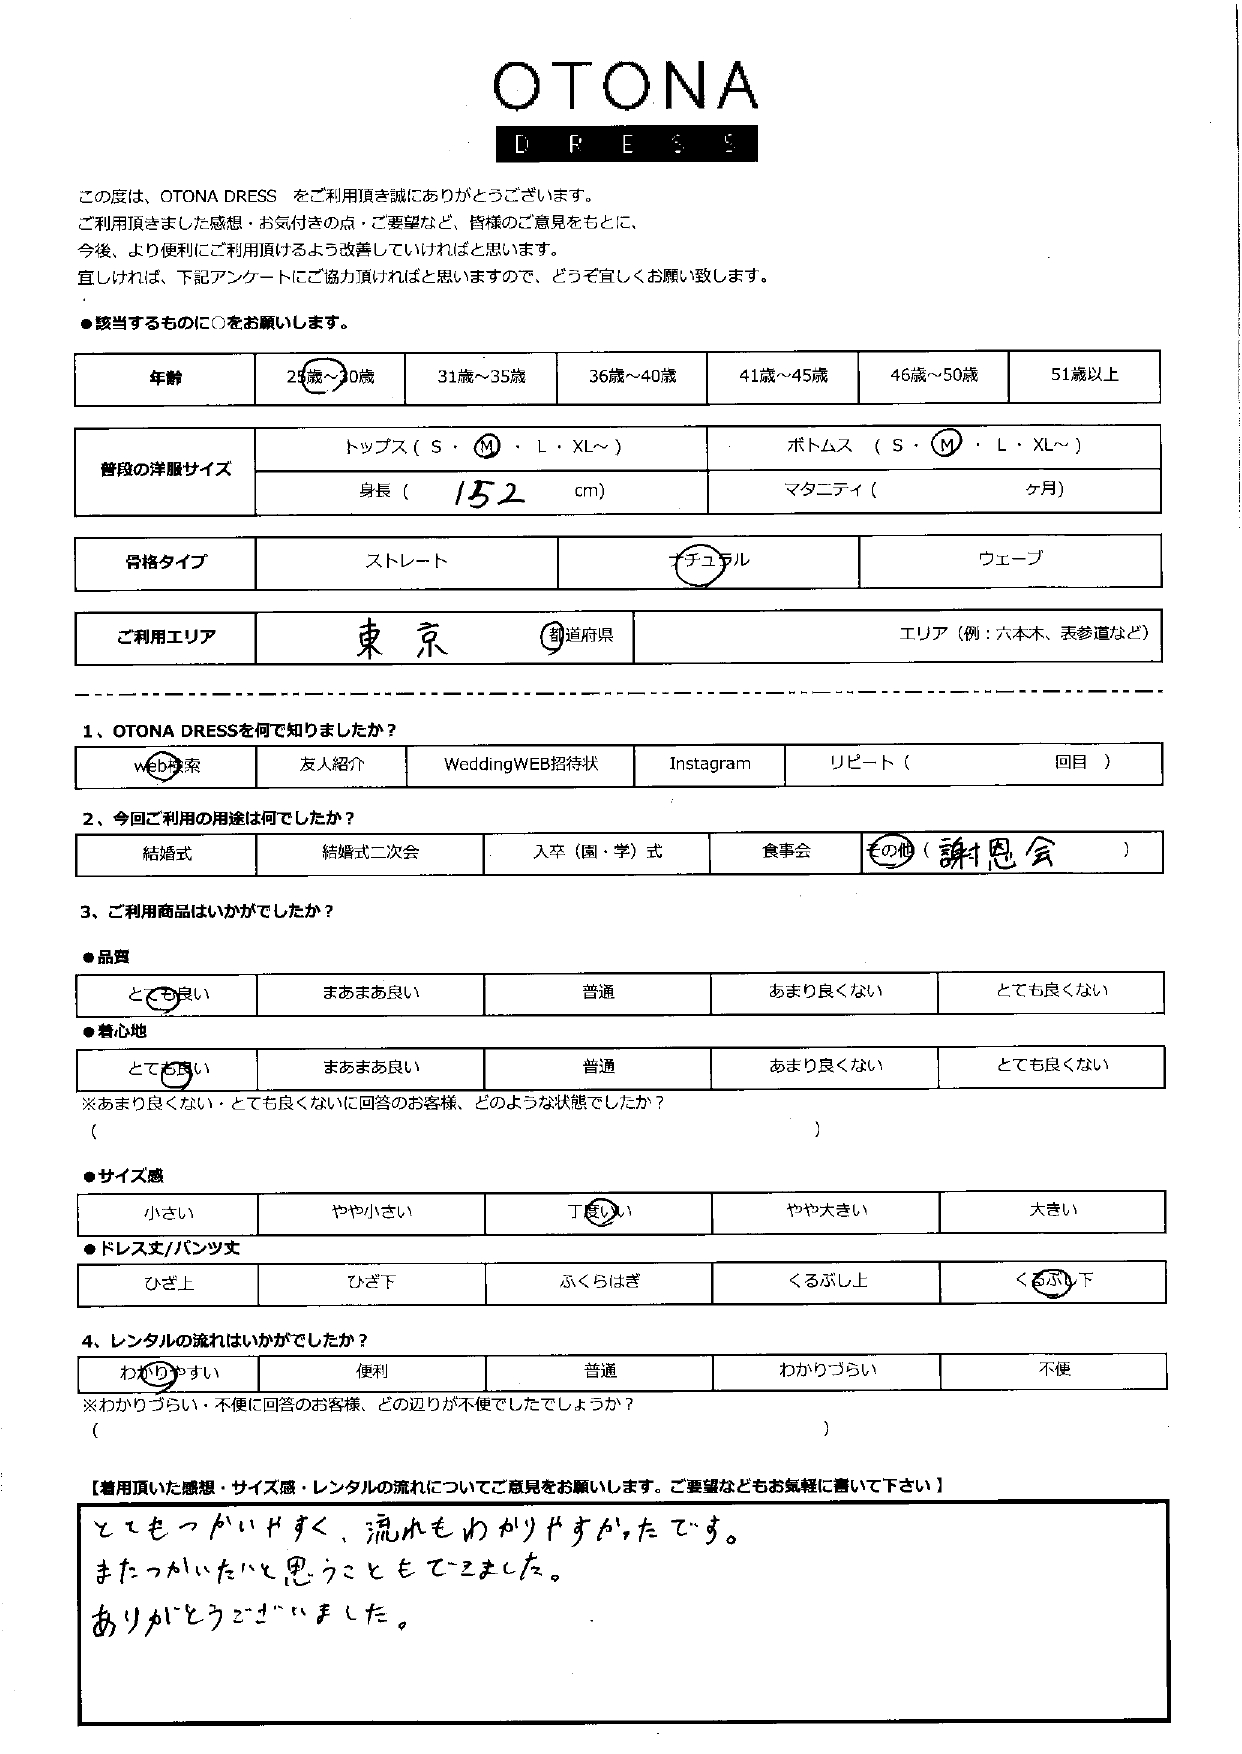 OTONA
DRESS
この度は、OTONA DRESS　をご利用頂き誠にありがとうございます。
ご利用頂きました感想・お気付きの点・ご要望など、皆様のご意見をもとに、
今後、より便利にご利用頂けるよう改善していければと思います。
宜しければ、下記アンケートにご協力頂ければと思いますので、どうぞ宜しくお願い致します。
●該当するものに○をお願いします。
年齢 25歳～30歳 31歳～35歳 36歳～40歳 41歳～45歳 46歳～50歳 51歳以上
普段の洋服サイズ トップス ( S ・ M ・ L ・ XL～ ) ボトムス ( S ・ M ・ L ・ XL～ )
身長 ( 152 cm) マタニティ ( ケ月)
骨格タイプ ストレート ナチュラル ウェーブ
ご利用エリア 東京 都道府県 エリア（例：六本木、表参道など）
1、OTONA DRESSを何で知りましたか？
web検索 友人紹介 WeddingWEB招待状 Instagram リピート（ 回目 ）
2、今回ご利用の用途は何でしたか？
結婚式 結婚式二次会 入卒（園・学）式 食事会 その他（ 謝恩会 ）
3、ご利用商品はいかがでしたか？
●品質
とても良い まあまあ良い 普通 あまり良くない とても良くない
●着心地
とても良い まあまあ良い 普通 あまり良くない とても良くない
※あまり良くない・とても良くないに回答のお客様、どのような状態でしたか？
（ ）
●サイズ感
小さい やや小さい 丁度いい やや大きい 大きい
●ドレス丈/パンツ丈
ひざ上 ひざ下 ふくらはぎ くるぶし上 くるぶし下
4、レンタルの流れはいかがでしたか？
わかりやすい 便利 普通 わかりづらい 不便
※わかりづらい・不便に回答のお客様、どの辺りが不便でしたでしょうか？
（ ）
【着用頂いた感想・サイズ感・レンタルの流れについてご意見をお願いします。ご要望などもお気軽に書いて下さい】
とてもつかいやすく、流れもわかりやすかったです。
またつかいたいと思うこともでてきました。
ありがとうございました。